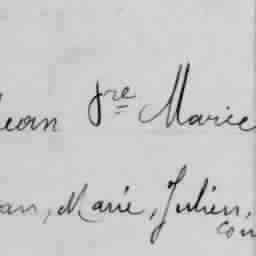 Jean Fre Marie
an, Marie, Julien,
Con